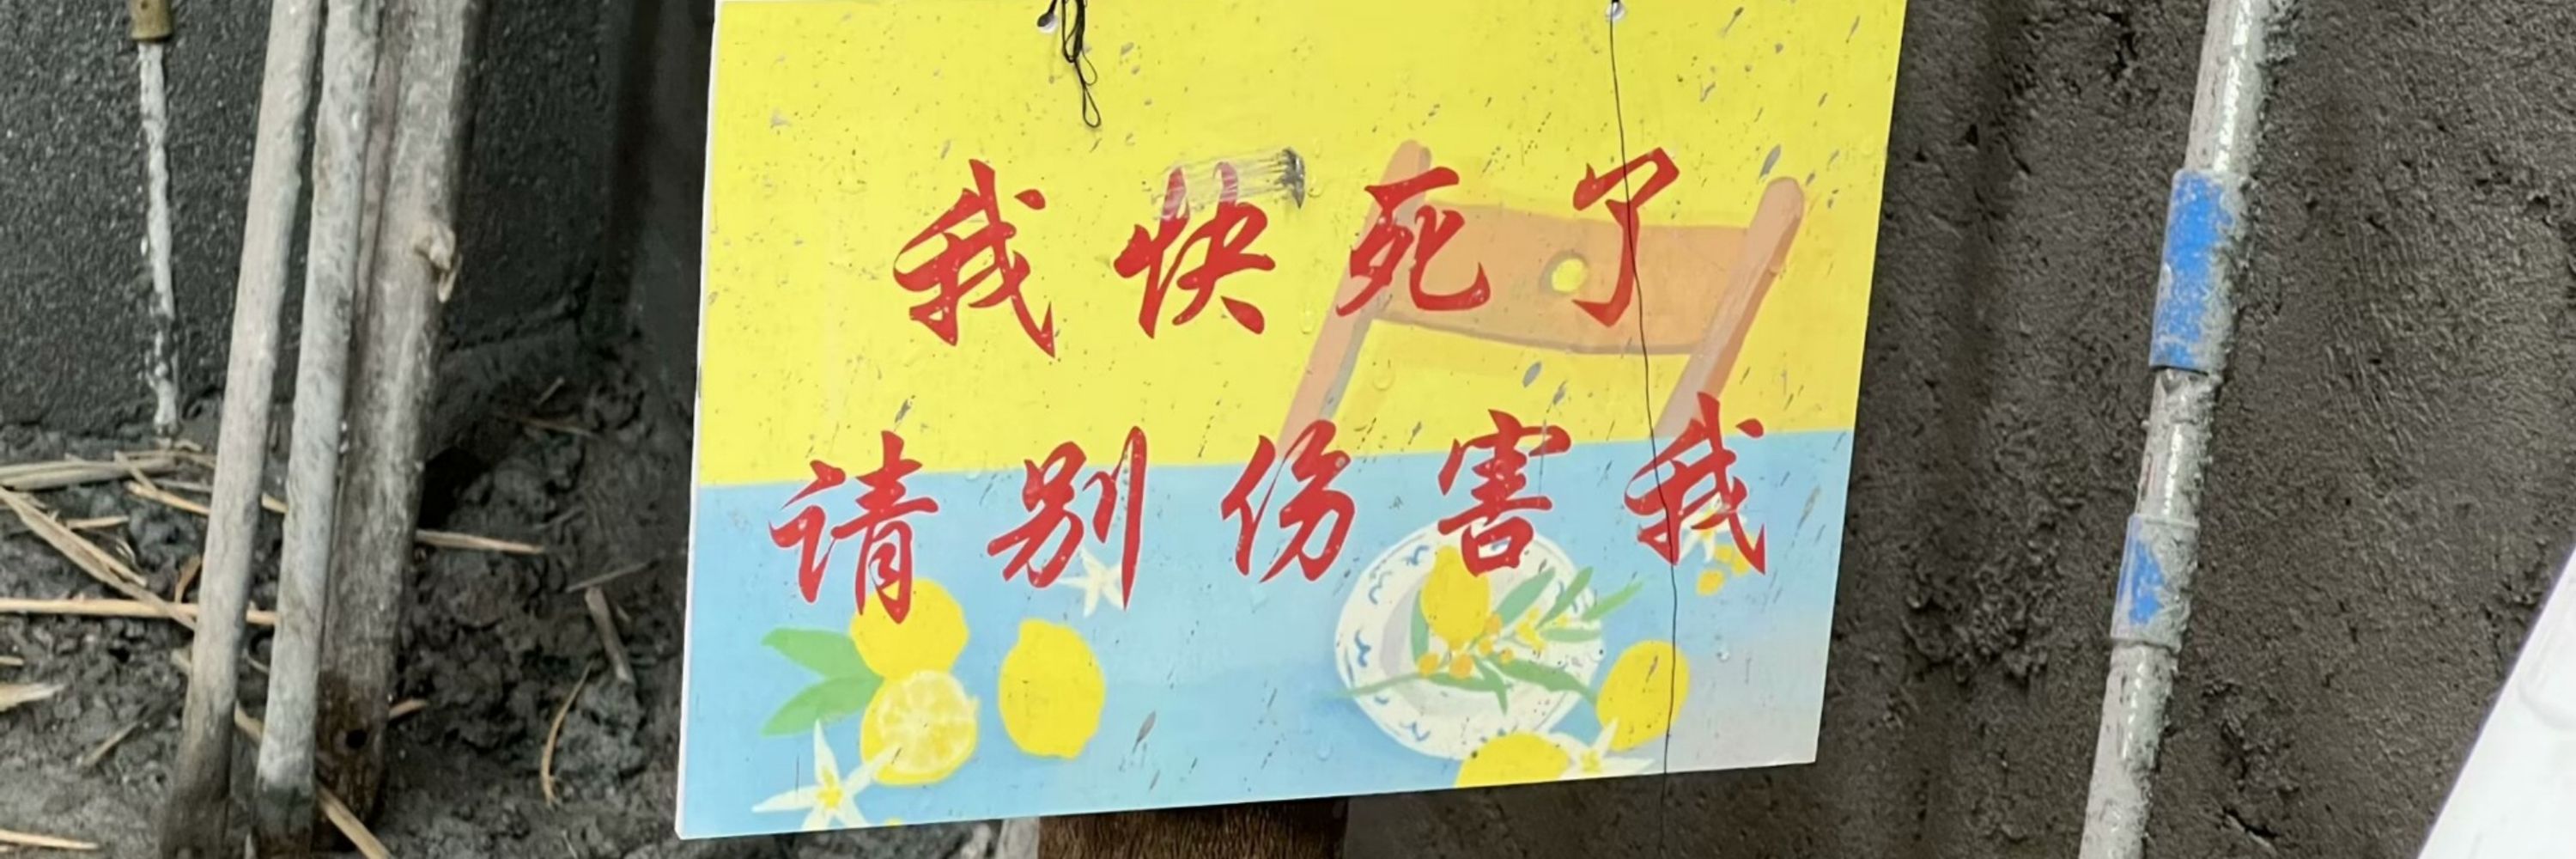 我快死了
请别伤害我